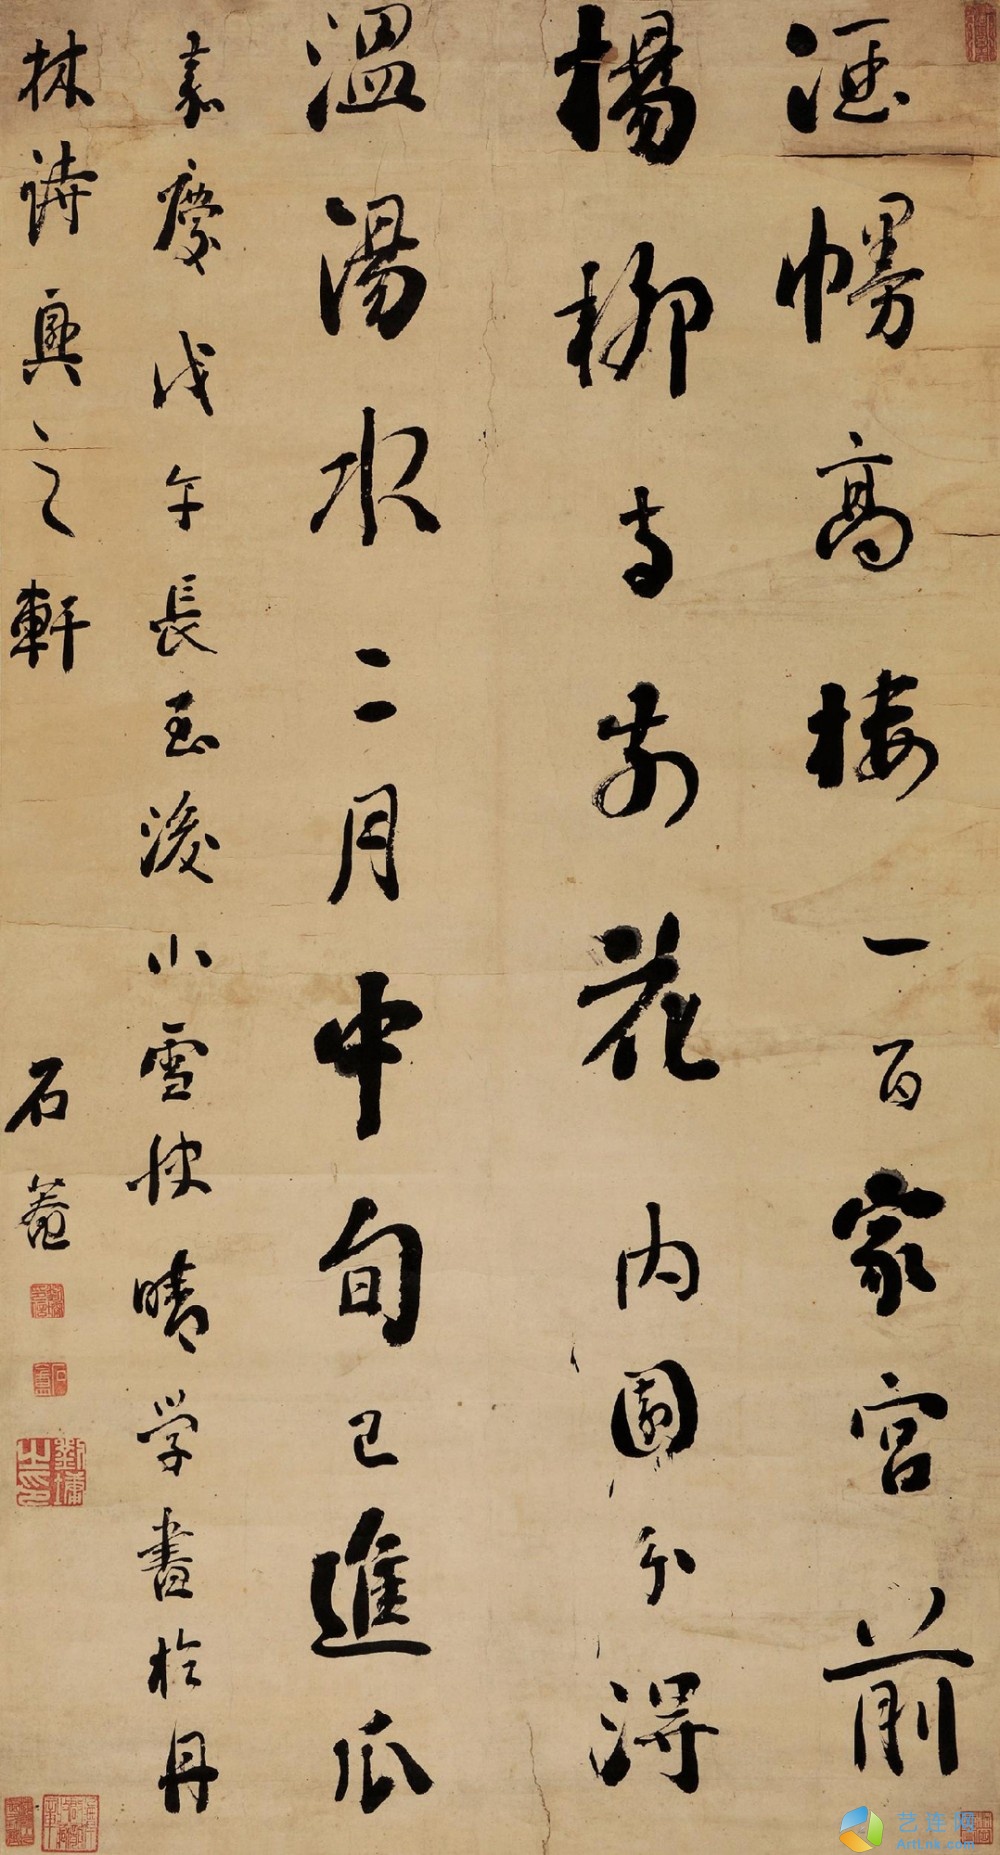 酒幔高樓一百家宮前
楊柳寺前花內園分得
溫湯水二月中旬已進瓜
嘉慶戊午長至後小雪快晴学書於丹
林詩興之軒
石菴
劉墉之印
艺连网
Artlink.com